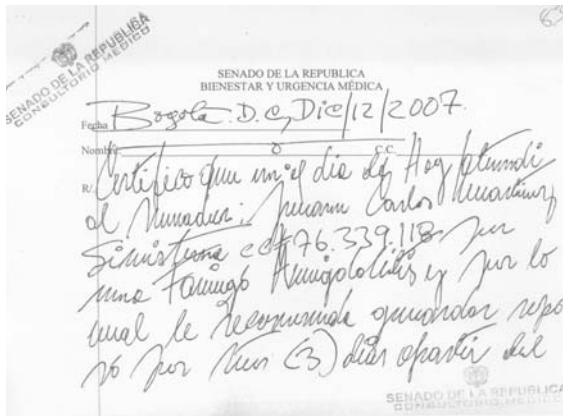 63
SENADO DE LA REPUBLICA
CONSULTORIO MEDICO
SENADO DE LA REPUBLICA
BIENESTAR Y URGENCIA MÉDICA
Fecha Bogota D.C, Dic/12/2007.
Nombre C.C.
R/. Certifico que en el dia de Hoy atendi
al Senador: Juann Carlos Martinez
Sinisterra cc# 76.339.118 por
una Faringo Amigdalitis y por lo
cual le recomienda guardar repo
so por tres (3) dias apartir del
SENADO DE LA REPUBLICA
CONSULTORIO MEDICO